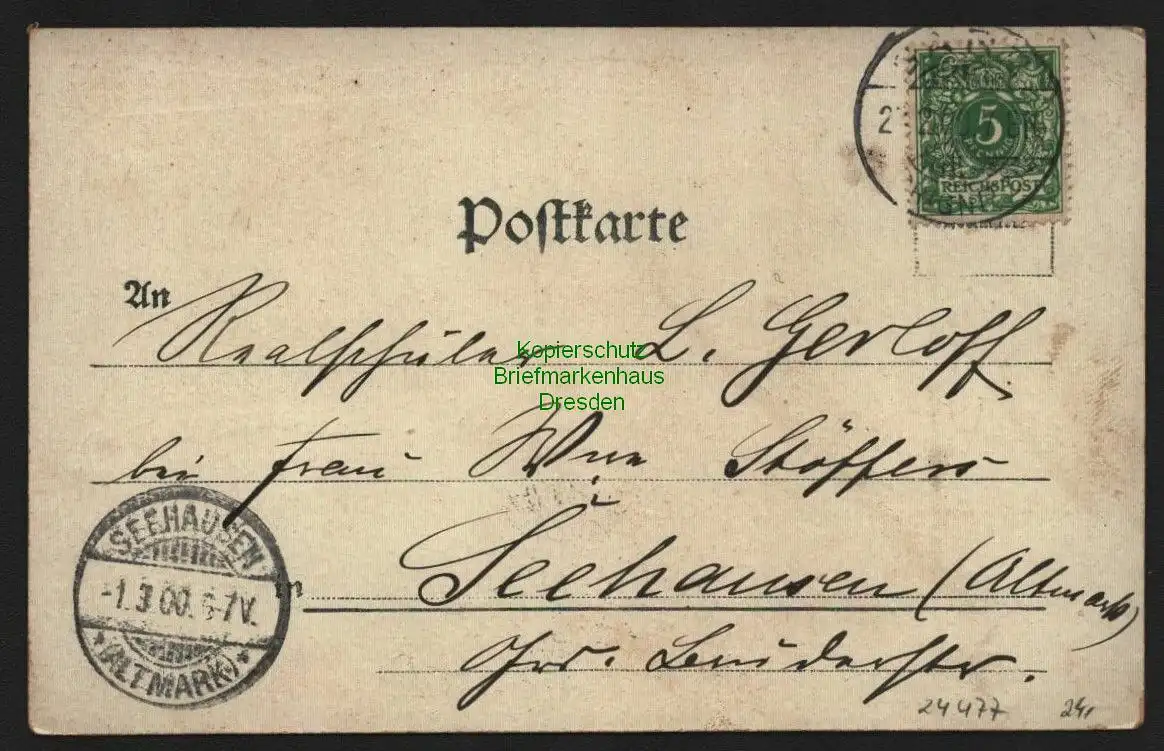 5
REICHSPOST
Postkarte
An
Realschüler L. Gerloff
Kopierschutz
Briefmarkenhaus
Dresden
bei Frau Wwe Stöffers
SEEHAUSEN
-1.3.00. 6-7V.
*(ALTMARK)*
in Seehausen (Altmark)
24477
24,